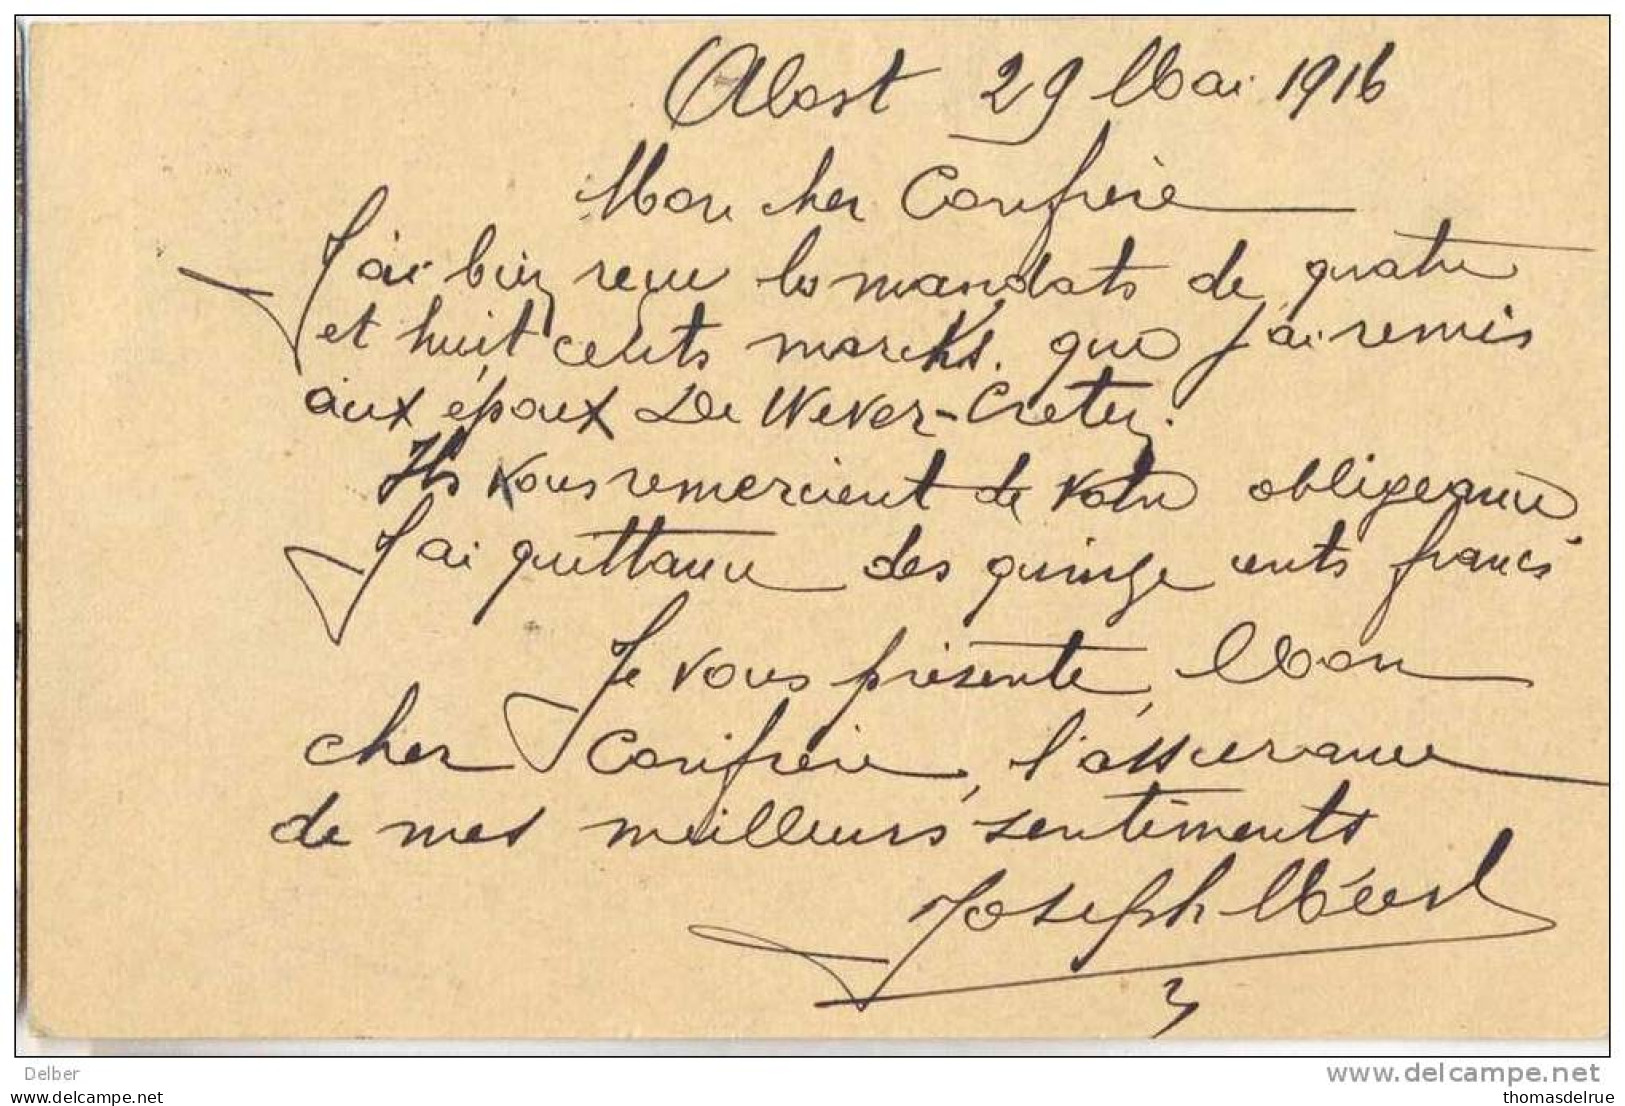 Alost 29 Mai 1916
Mon cher Confrère
J'ai bien reçu les mandats de quatre
et huit cents marcks. que j'ai remis
aux époux De Wever-Creten.
Ils vous remercient de votre obligeance
J'ai quittance des quinze cents francs
Je vous présente, Mon
cher Confrère, l'assurance
de mes meilleurs sentiments
Joseph
Delber
www.delcampe.net
thomasdelrue